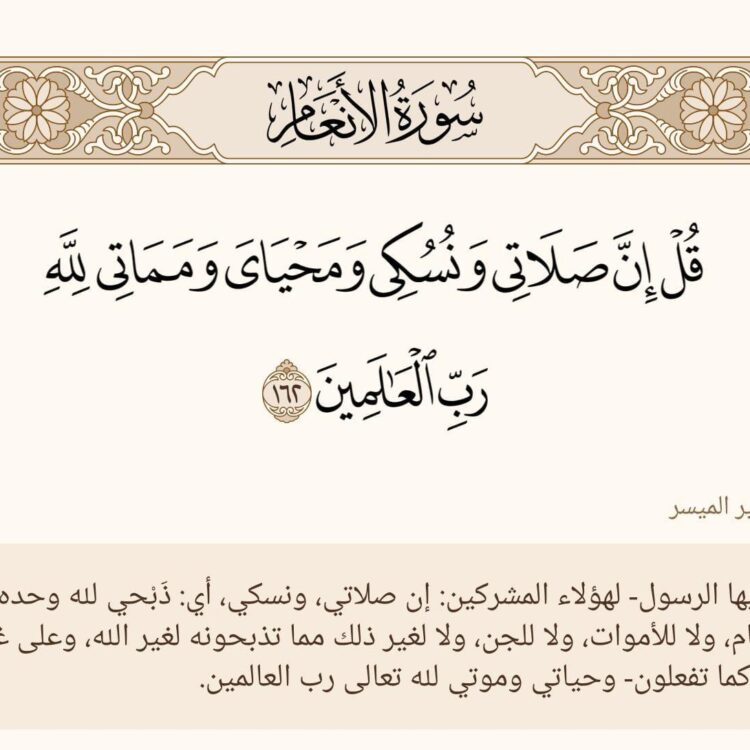 سُورَةُ الأَنْعَامِ
قُلْ إِنَّ صَلَاتِى وَنُسُكِى وَمَحْيَاىَ وَمَمَاتِى لِلَّهِ
رَبِّ ٱلْعَـٰلَمِينَ ١٦٢
الميسر
الرسول- لهؤلاء المشركين: إن صلاتي، ونسكي، أي: ذَبْحي لله وحده
ولا للأموات، ولا للجن، ولا لغير ذلك مما تذبحونه لغير الله، وعلى
كما تفعلون- وحياتي وموتي لله تعالى رب العالمين.